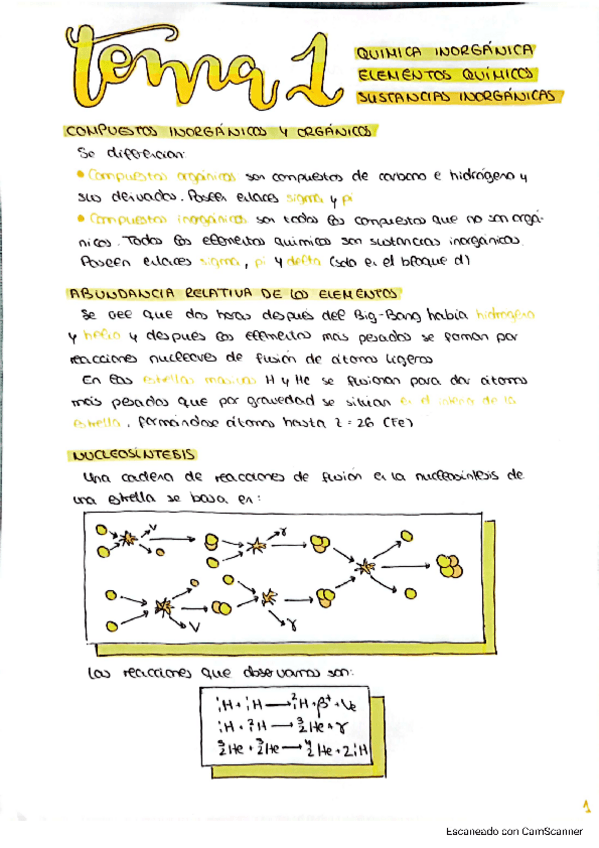 tema 1
QUIMICA INORGÁNICA
ELEMENTOS QUÍMICOS
SUSTANCIAS INORGÁNICAS
COMPUESTOS INORGÁNICOS Y ORGÁNICOS
Se diferencian:
• Compuestos orgánicos son compuestos de carbono e hidrógeno y
sus derivados. Poseen enlaces sigma y pi
• Compuestos inorgánicos son todos los compuestos que no son orgá-
nicos. Todos los elementos quimicos son sustancias inorgánicas.
Poseen enlaces sigma, pi y delta (solo en el bloque d)
ABUNDANCIA RELATIVA DE LOS ELEMENTOS
Se cee que dos horas después del Big-Bang había hidrogeno
y helio y despues los elementos más pesados se forman por
reacciones nucleares de fusión de átomos ligeros
En las estrellas masivas H y He se fusionan para dar átomos
más pesados que por gravedad se sitúan en el interior de la
estrella, formándose átomos hasta z=26 (Fe)
NUCLEOSÍNTESIS
Una cadena de reacciones de fusión en la nucleosíntesis de
una estrella se basa en:
ν γ
ν γ
Las reacciones que observamos son:
¹₁H + ¹₁H → ²₁H + β⁺ + νe
¹₁H + ²₁H → ³₂He + γ
³₂He + ³₂He → ⁴₂He + 2¹₁H
1
Escaneado con CamScanner